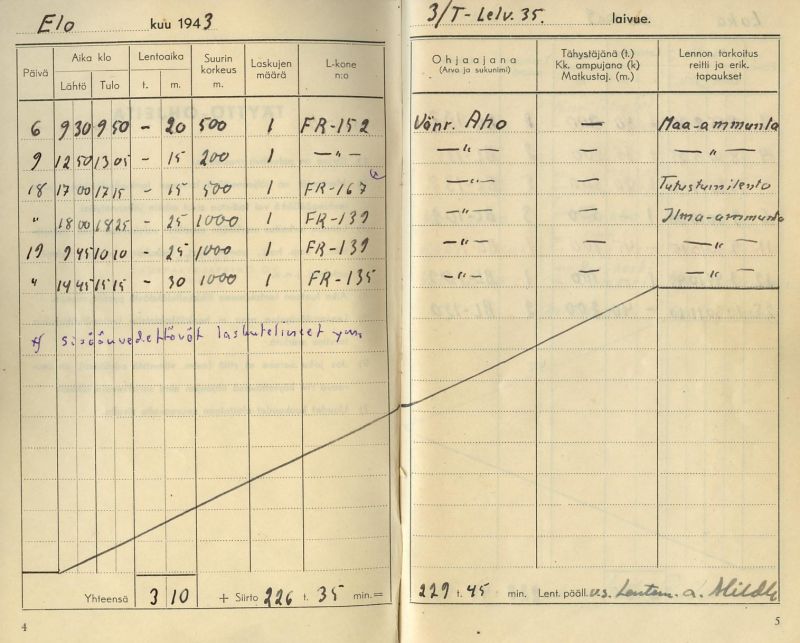 Elo kuu 1943
3/T-Lelv. 35. laivue.
Päivä
Aika klo
Lähtö Tulo
Lentoaika
t. m.
Suurin korkeus m.
Laskujen määrä
L-kone n:o
Ohjaajana
(Arvo ja sukunimi)
Tähystäjänä (t.)
Kk. ampujana (k)
Matkustaj. (m.)
Lennon tarkoitus
reitti ja erik.
tapaukset
6 9 30 9 50 - 20 500 1 FR-152 Vänr. Aho — Maa-ammunta
9 12 50 13 05 - 15 200 1 —"— —"— — —"—
18 17 00 17 15 - 15 500 1 FR-167 x) —"— — Tutustumilento
" 18 00 18 25 - 25 1000 1 FR-139 —"— — Ilma-ammunta
19 9 45 10 10 - 25 1000 1 FR-139 —"— — —"—
" 14 45 15 15 - 30 1000 1 FR-135 —"— — —"—
x) sisäänvedettävät laskutelineet ym.
Yhteensä 3 10 + Siirto 226 t. 35 min. = 229 t. 45 min. Lent. pääll. v.s. Lentom.
4
5